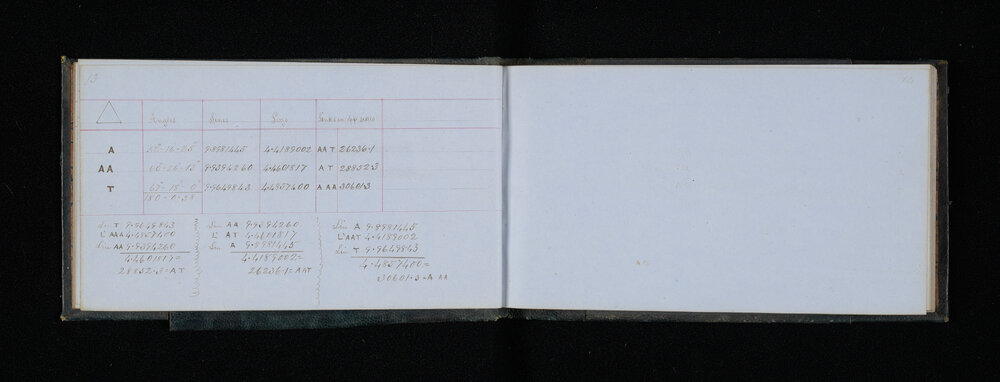 13
Angles Sines Logs
A 9.8981445 4.4189002 AA T 26236.1
AA 9.9394260 4.4601817 A T 28852.3
T 9.9649843 4.4857400 A AA 30601.3
180-0-38
Sin T 9.9649843
L A AA 4.4857400
Sin AA 9.9394260
4.4601817=
28852.3=AT
Sin AA 9.9394260
L AT 4.4601817
Sin A 9.8981445
4.4189002=
26236.1=AAT
Sin A 9.8981445
L AAT 4.4189002
Sin T 9.9649843
4.4857400=
30601.3=A AA